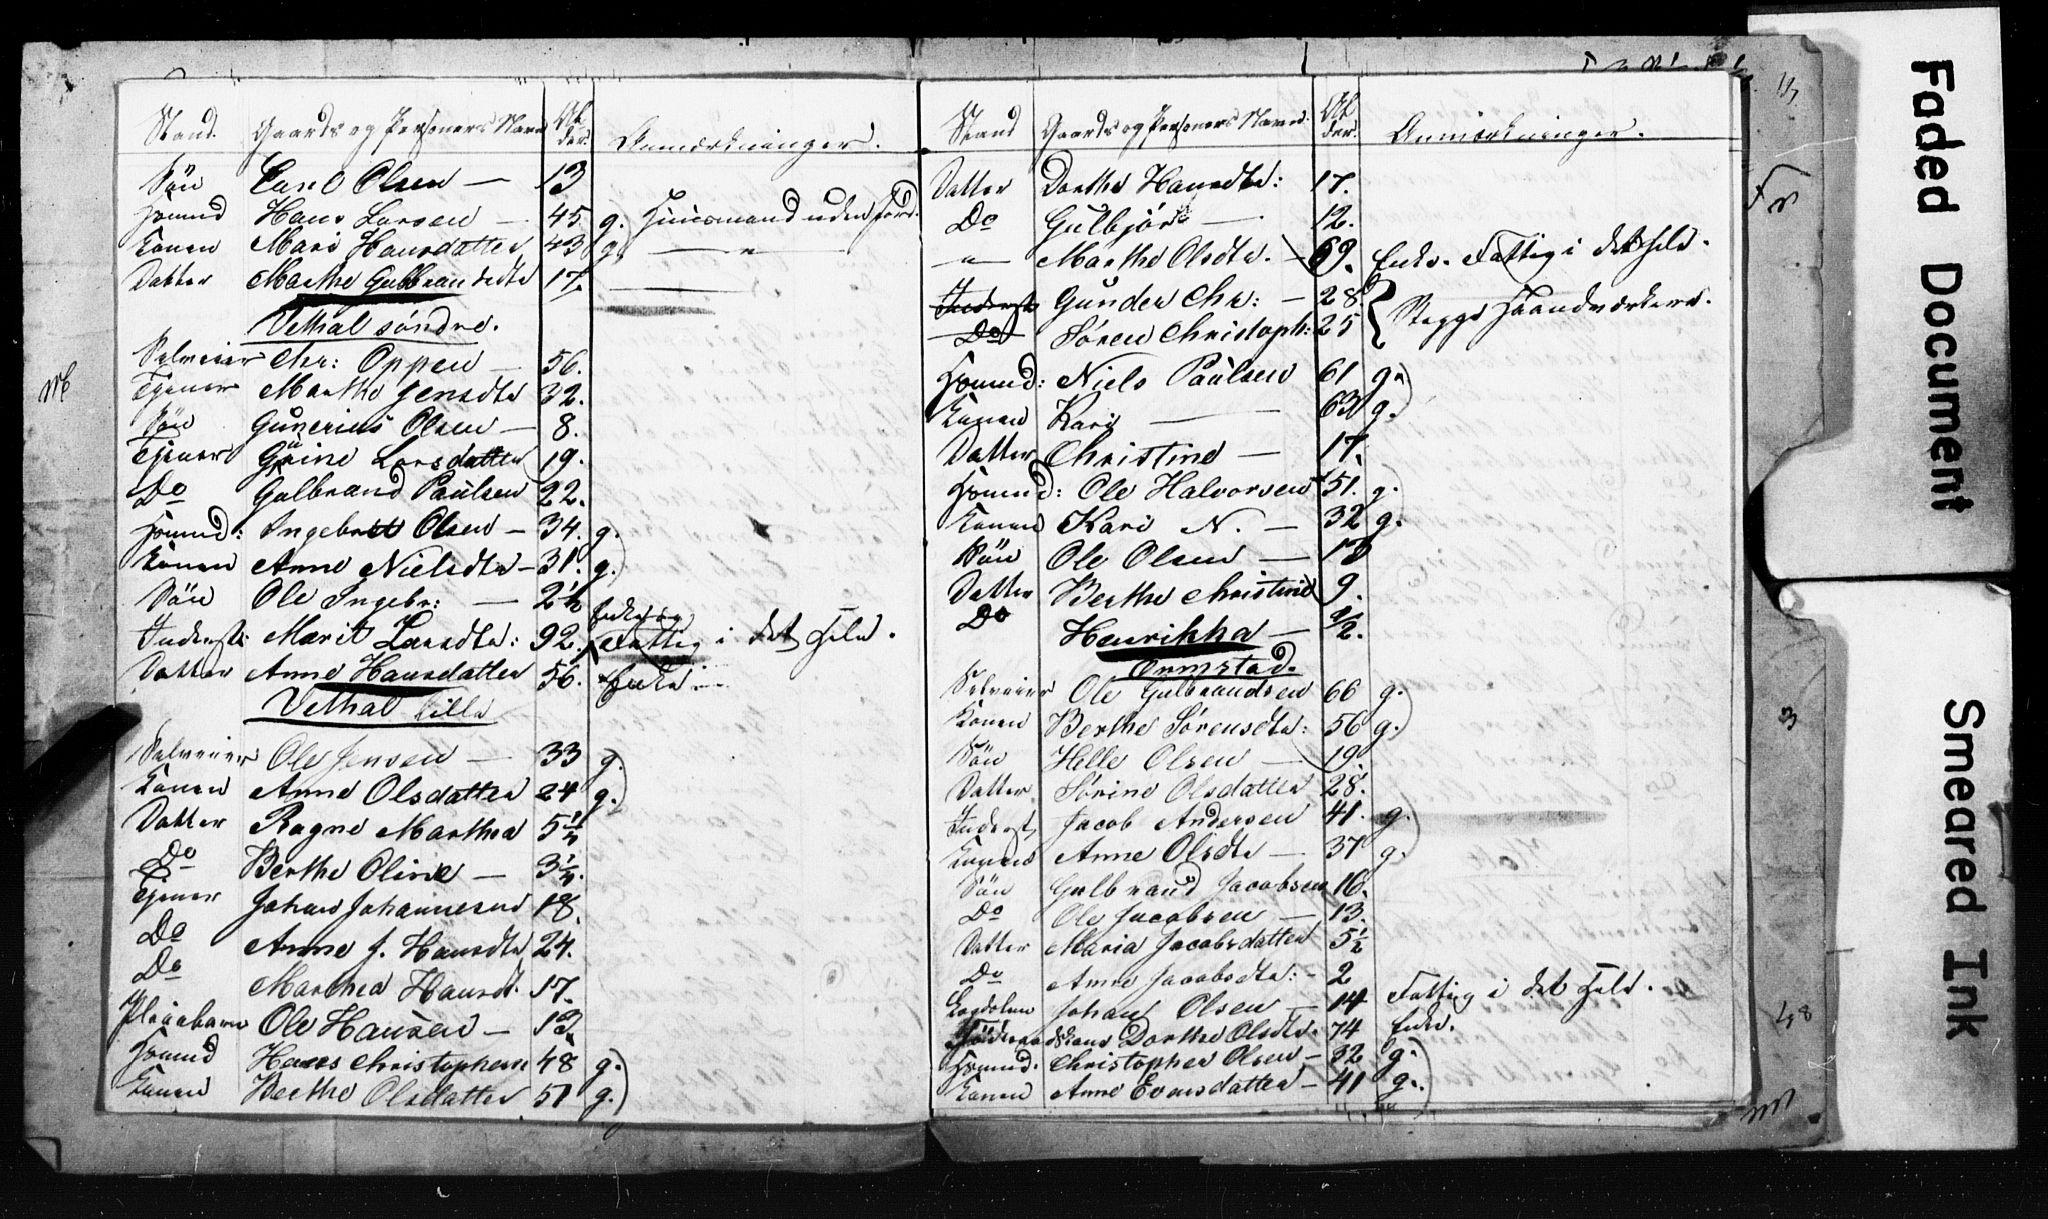 Stand. Gaards og Personers Navne Al der. Anmærkninger.
Sön Carl Olsen — 13
Huusmd Hans Larsen — 45. g. Huusmand uden Jord.
Konen Mari Hansdatter 43 g. — " —
Datter Marthe Gulbrandsdtr 17. —
Vethal söndre.
Selveier Chr: Oppen — 56.
Tjener Marthe Jensdtr 32.
Sön Gunerius Olsen — 8.
Tjener Larsdatter 19.
Do Gulbrand Paulsen 22.
Huusmd: Ingebret Olsen — 34. g.
Konen Anne Nielsdtr — 31. g.
Sön Ole Ingebr: — 2½
Inderst: Marit Larsdtr: 92. Enke og Fattig i det Hele.
Datter Anne Hansdatter 56. Enke —
Vethal lille
Selveier Ole Jensen — 33 g.
Konen Anne Olsdatter 24 g.
Datter Ragne Marthea 5¼
Do Berthe Oline — 3¼.
Tjener Johan Johannesen 18.
Do Anne J. Hansdtr 24.
Do Marthea Hansd. 17.
Pleiebarn Ole Hansen — 13.
Huusmd Hans Christophersen 48 g.
Konen Berthe Olsdatter 51 g.
Stand Gaards og Personers Navne. Al der. Anmærkninger.
Datter Dorthe Hansdtr: 17.
Do Gulbjør — 12.
— " — Marthe Olsdtr. — 69. Enke. Fattig i det Hele.
Inderst Gunder Chr: — 28.
Do Søren Christoph: 25 Begge Haandværkere.
Huusmd: Niels Paulsen 61 g.
Konen Kari — 63 g.
Datter Christine — 17.
Huusmd: Ole Halvorsen 51. g.
Konen Kari N. — 32 g.
Sön Ole Olsen —
Datter Berthe Christine 9.
Do Henrikka — ½.
Ormstad.
Selveier Ole Gulbrandsen 66 g.
Konen Berthe Sørensdtr: 56 g.
Sön Helle Olsen — 19.
Datter Sörine Olsdatter 28.
Inderst Jacob Andersen 41. g.
Konen Anne Olsdtr — 37 g.
Sön Gulbrand Jacobsen 16.
Do Ole Jacobsen — 13.
Datter Maria Jacobsdatter 5½
Do Anne Jacobsdtr: — 2
Lægdslem Johan Olsen — 14 Fattig i det Hele.
Dorthe Olsdtr. 74 Enke.
Huusmd. Christopher Olsen — 32 g.
Konen Anne Evensdatter — 41 g.
Faded Document
Smeared Ink